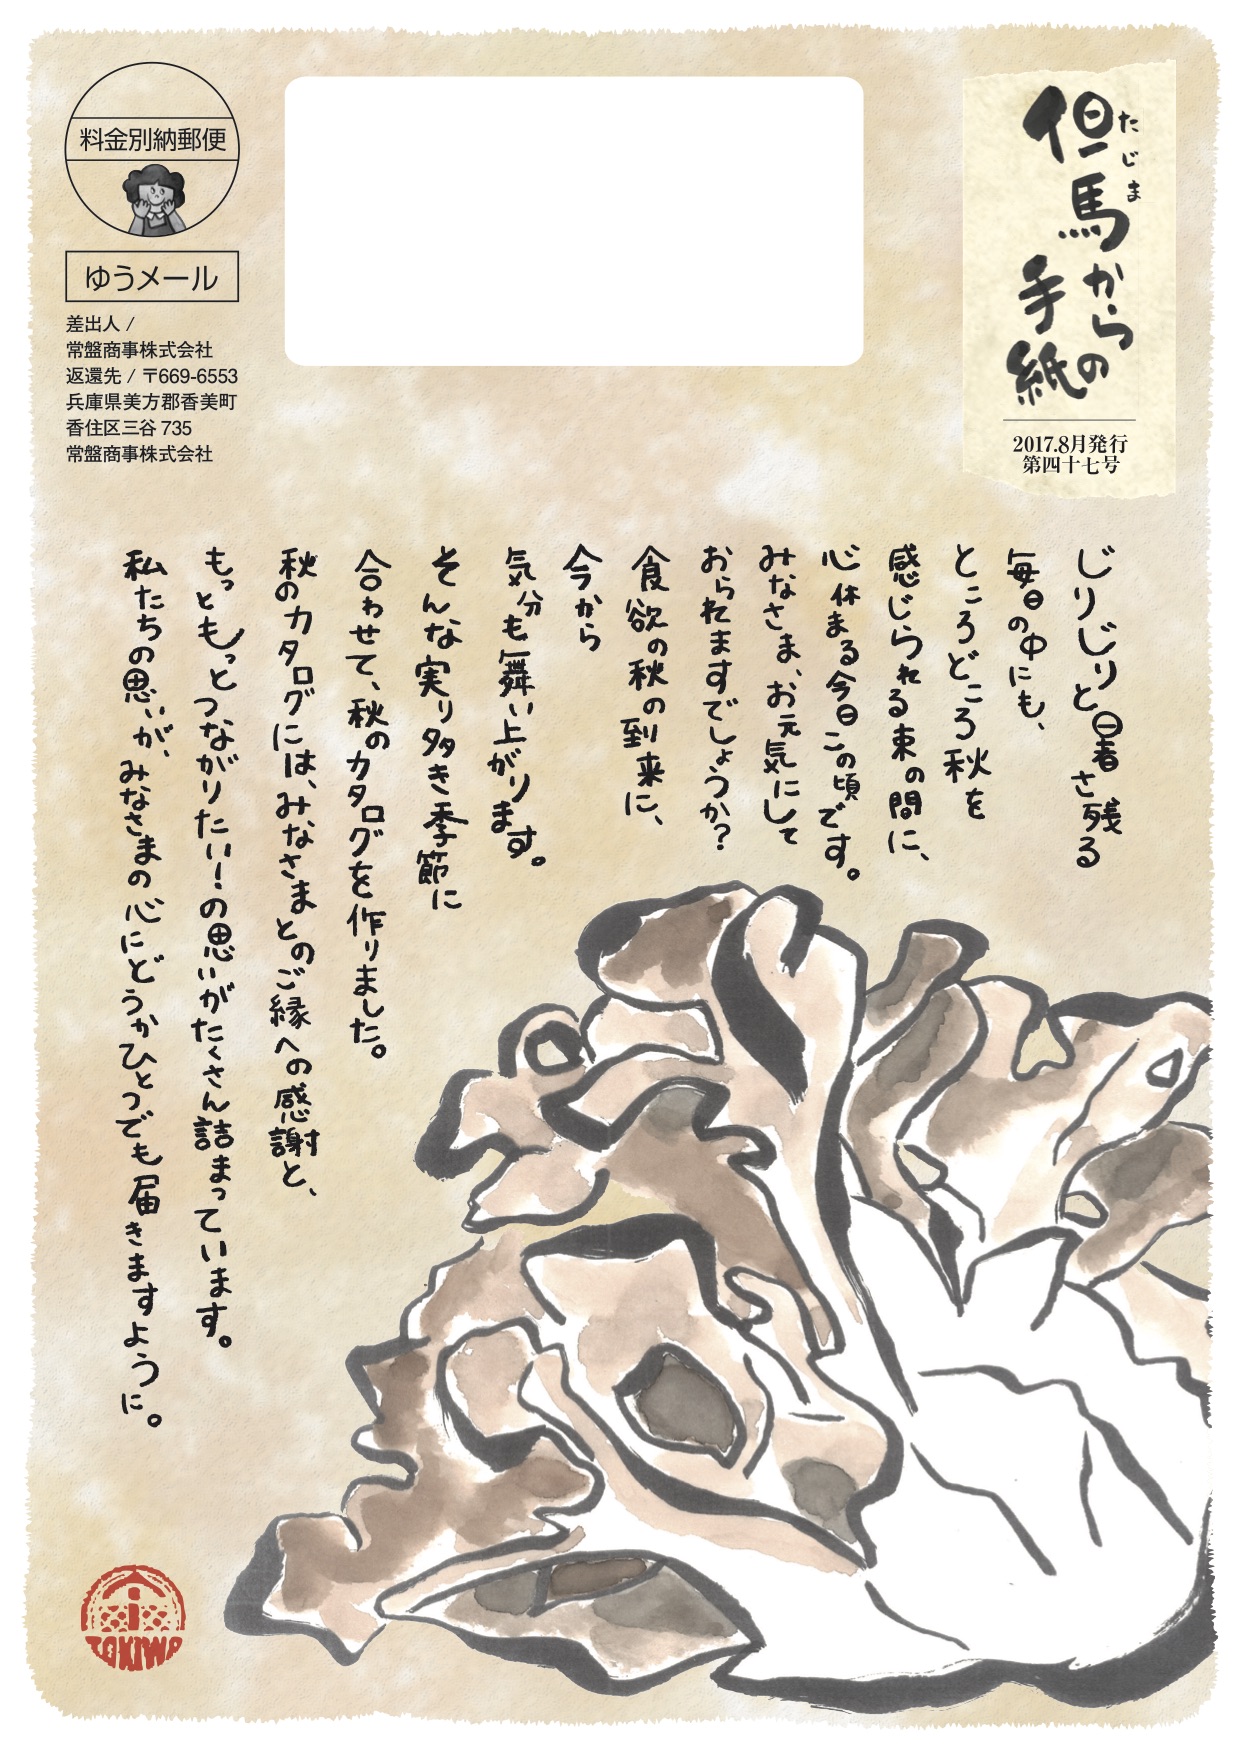 但馬からの手紙
たじま
2017.8月発行
第四十七号
料金別納郵便
ゆうメール
差出人 /
常盤商事株式会社
返還先 / 〒669-6553
兵庫県美方郡香美町
香住区三谷 735
常盤商事株式会社
じりじりと暑さ残る
毎日の中にも、
ところどころ秋を
感じられる束の間に、
心休まる今日この頃です。
みなさま、お元気にして
おられますでしょうか?
食欲の秋の到来に、
今から
気分も舞い上がります。
そんな実り多き季節に
合わせて、秋のカタログを作りました。
秋のカタログには、みなさまとのご縁への感謝と、
もっともっとつながりたい!の思いがたくさん詰まっています。
私たちの思いが、みなさまの心にどうかひとつでも届きますように。
TOKIWA